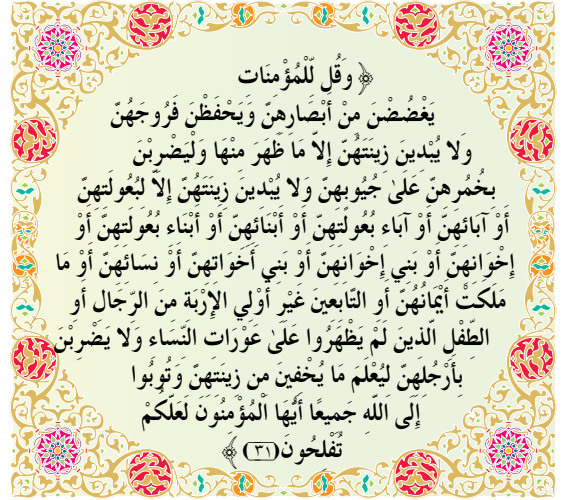 ﴿ وَقُل لِّلْمُؤْمِنَات
يَغْضُضْنَ مِنْ أَبْصَارِهِنَّ وَيَحْفَظْنَ فُرُوجَهُنَّ
وَلا يُبْدِينَ زِينَتَهُنَّ إِلاَّ مَا ظَهَرَ مِنْهَا وَلْيَضْرِبْنَ
بِخُمُرِهِنَّ عَلَىٰ جُيُوبِهِنَّ وَلا يُبْدِينَ زِينَتَهُنَّ إِلاَّ لِبُعُولَتِهِنَّ
أَوْ آبَائِهِنَّ أَوْ آبَاء بُعُولَتِهِنَّ أَوْ أَبْنَائِهِنَّ أَوْ أَبْنَاء بُعُولَتِهِنَّ أَوْ
إِخْوَانِهِنَّ أَوْ بَنِي إِخْوَانِهِنَّ أَوْ بَنِي أَخَوَاتِهِنَّ أَوْ نِسَائِهِنَّ أَوْ مَا
مَلَكَتْ أَيْمَانُهُنَّ أَوِ التَّابِعِينَ غَيْرِ أُوْلِي الإِرْبَةِ مِنَ الرِّجَالِ أَوِ
الطِّفْلِ الَّذِينَ لَمْ يَظْهَرُوا عَلَىٰ عَوْرَاتِ النِّسَاء وَلا يَضْرِبْنَ
بِأَرْجُلِهِنَّ لِيُعْلَمَ مَا يُخْفِينَ مِن زِينَتِهِنَّ وَتُوبُوا
إِلَى اللَّهِ جَمِيعًا أَيُّهَا الْمُؤْمِنُونَ لَعَلَّكُمْ
تُفْلِحُونَ (٣١) ﴾